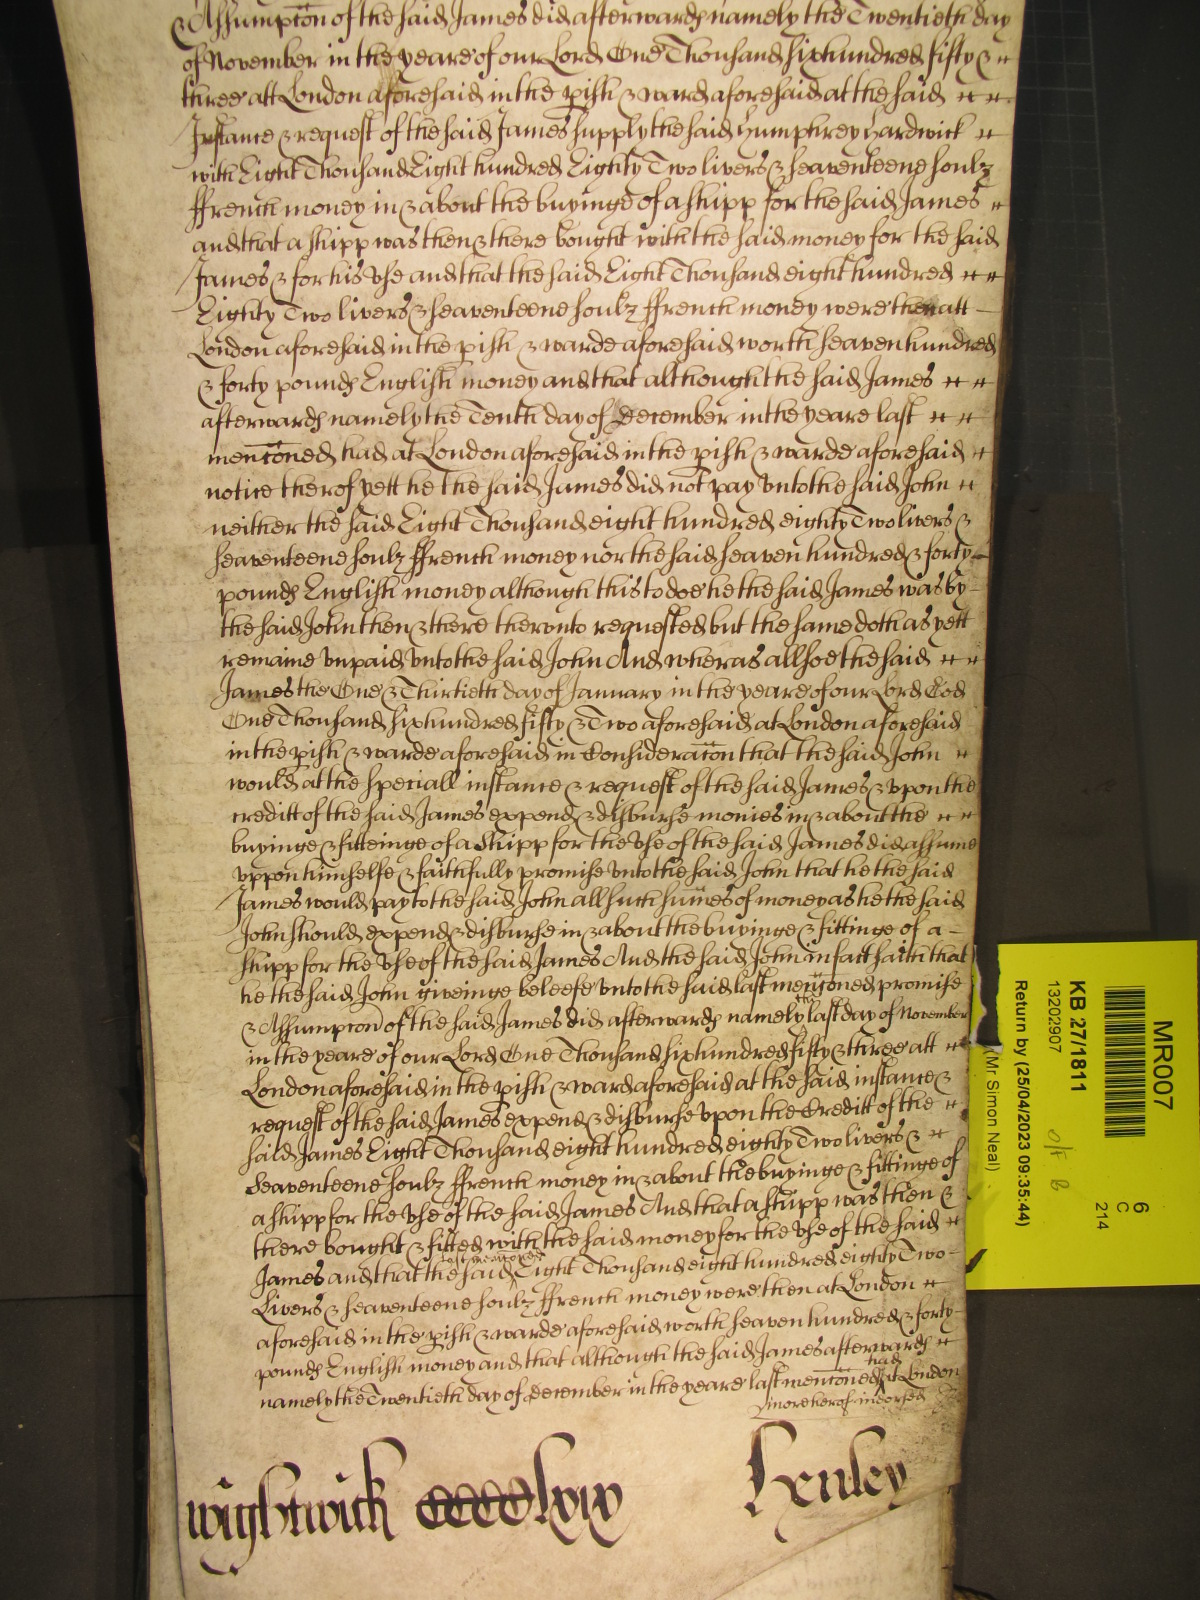 & Assumpton of the said James did afterwards namely the Twentieth day
of November in the yeare of our Lord One Thousand sixhundred fifty &
three att London aforesaid in the pish & ward aforesaid at the said
Instance & request of the said James supply the said Humphrey Hardwick
with Eight Thousand Eight hundred Eighty Two livers & seaventeene soulz
ffrench money in & about the buyinge of a shipp for the said James
and that a shipp was then & there bought with the said money for the said
James & for his vse and that the said Eight Thousand eight hundred
Eighty Two livers & seaventeene soulz ffrench money were then att
London aforesaid in the pish & warde aforesaid worth seaven hundred
& forty pounds English money and that although the said James
afterwards namely the Tenth day of December in the yeare last
menconed had at London aforesaid in the pish & warde aforesaid
notice therof yett he the said James did not pay vnto the said John
neither the said Eight Thousand eight hundred eighty Two livers &
seaventeene soulz ffrench money nor the said seaven hundred & forty
pounds English money although this to doe he the said James was by
the said John then & there therevnto requested but the same doth as yett
remaine vnpaid vnto the said John And wheras allsoe the said
James the One & Thirtieth day of January in the yeare of our Lord God
One Thousand sixhundred fifty & Two aforesaid at London aforesaid
in the pish & warde aforesaid in Consideracon that the said John
would at the speciall instance & request of the said James & vpon the
creditt of the said James expend & disburse monies in & about the
buyinge & fitteinge of a Shipp for the vse of the said James did assume
vppon himselfe & faithfully promise vnto the said John that he the said
James would pay to the said John all such sumes of money as he the said
John should expend & disburse in & about the buyinge & fittinge of a
shipp for the vse of the said James And the said John in fact saith that
he the said John giveinge beleefe vnto the said last menconed promise
& Assumpton of the said James did afterwards namely the last day of November
in the yeare of our Lord One Thousand sixhundred fifty & three att
London aforesaid in the pish & ward aforesaid at the said instance &
request of the said James expend & disburse vpon the Creditt of the
said James Eight Thousand eight hundred eighty Two livers &
Seaventeene soulz ffrench money in & about the buyinge & fittinge of
a shipp for the vse of the said James And that a shipp was then &
there bought & fitted with the said money for the vse of the said
James and that the said last menconed Eight Thousand eight hundred eighty Two
Livers & seaventeene soulz ffrench money were then at London
aforesaid in the pish & warde aforesaid worth seaven hundred & forty
pounds English money and that although the said James afterwards
namely the Twentieth day of December in the yeare last menconed had at London
more herof indorsed
Wightwick CCCClxix Henley
MR007
6
C
214
KB 27/1811
13202907
Return by (25/04/2023 09:35:44)
(Mr Simon Neal)